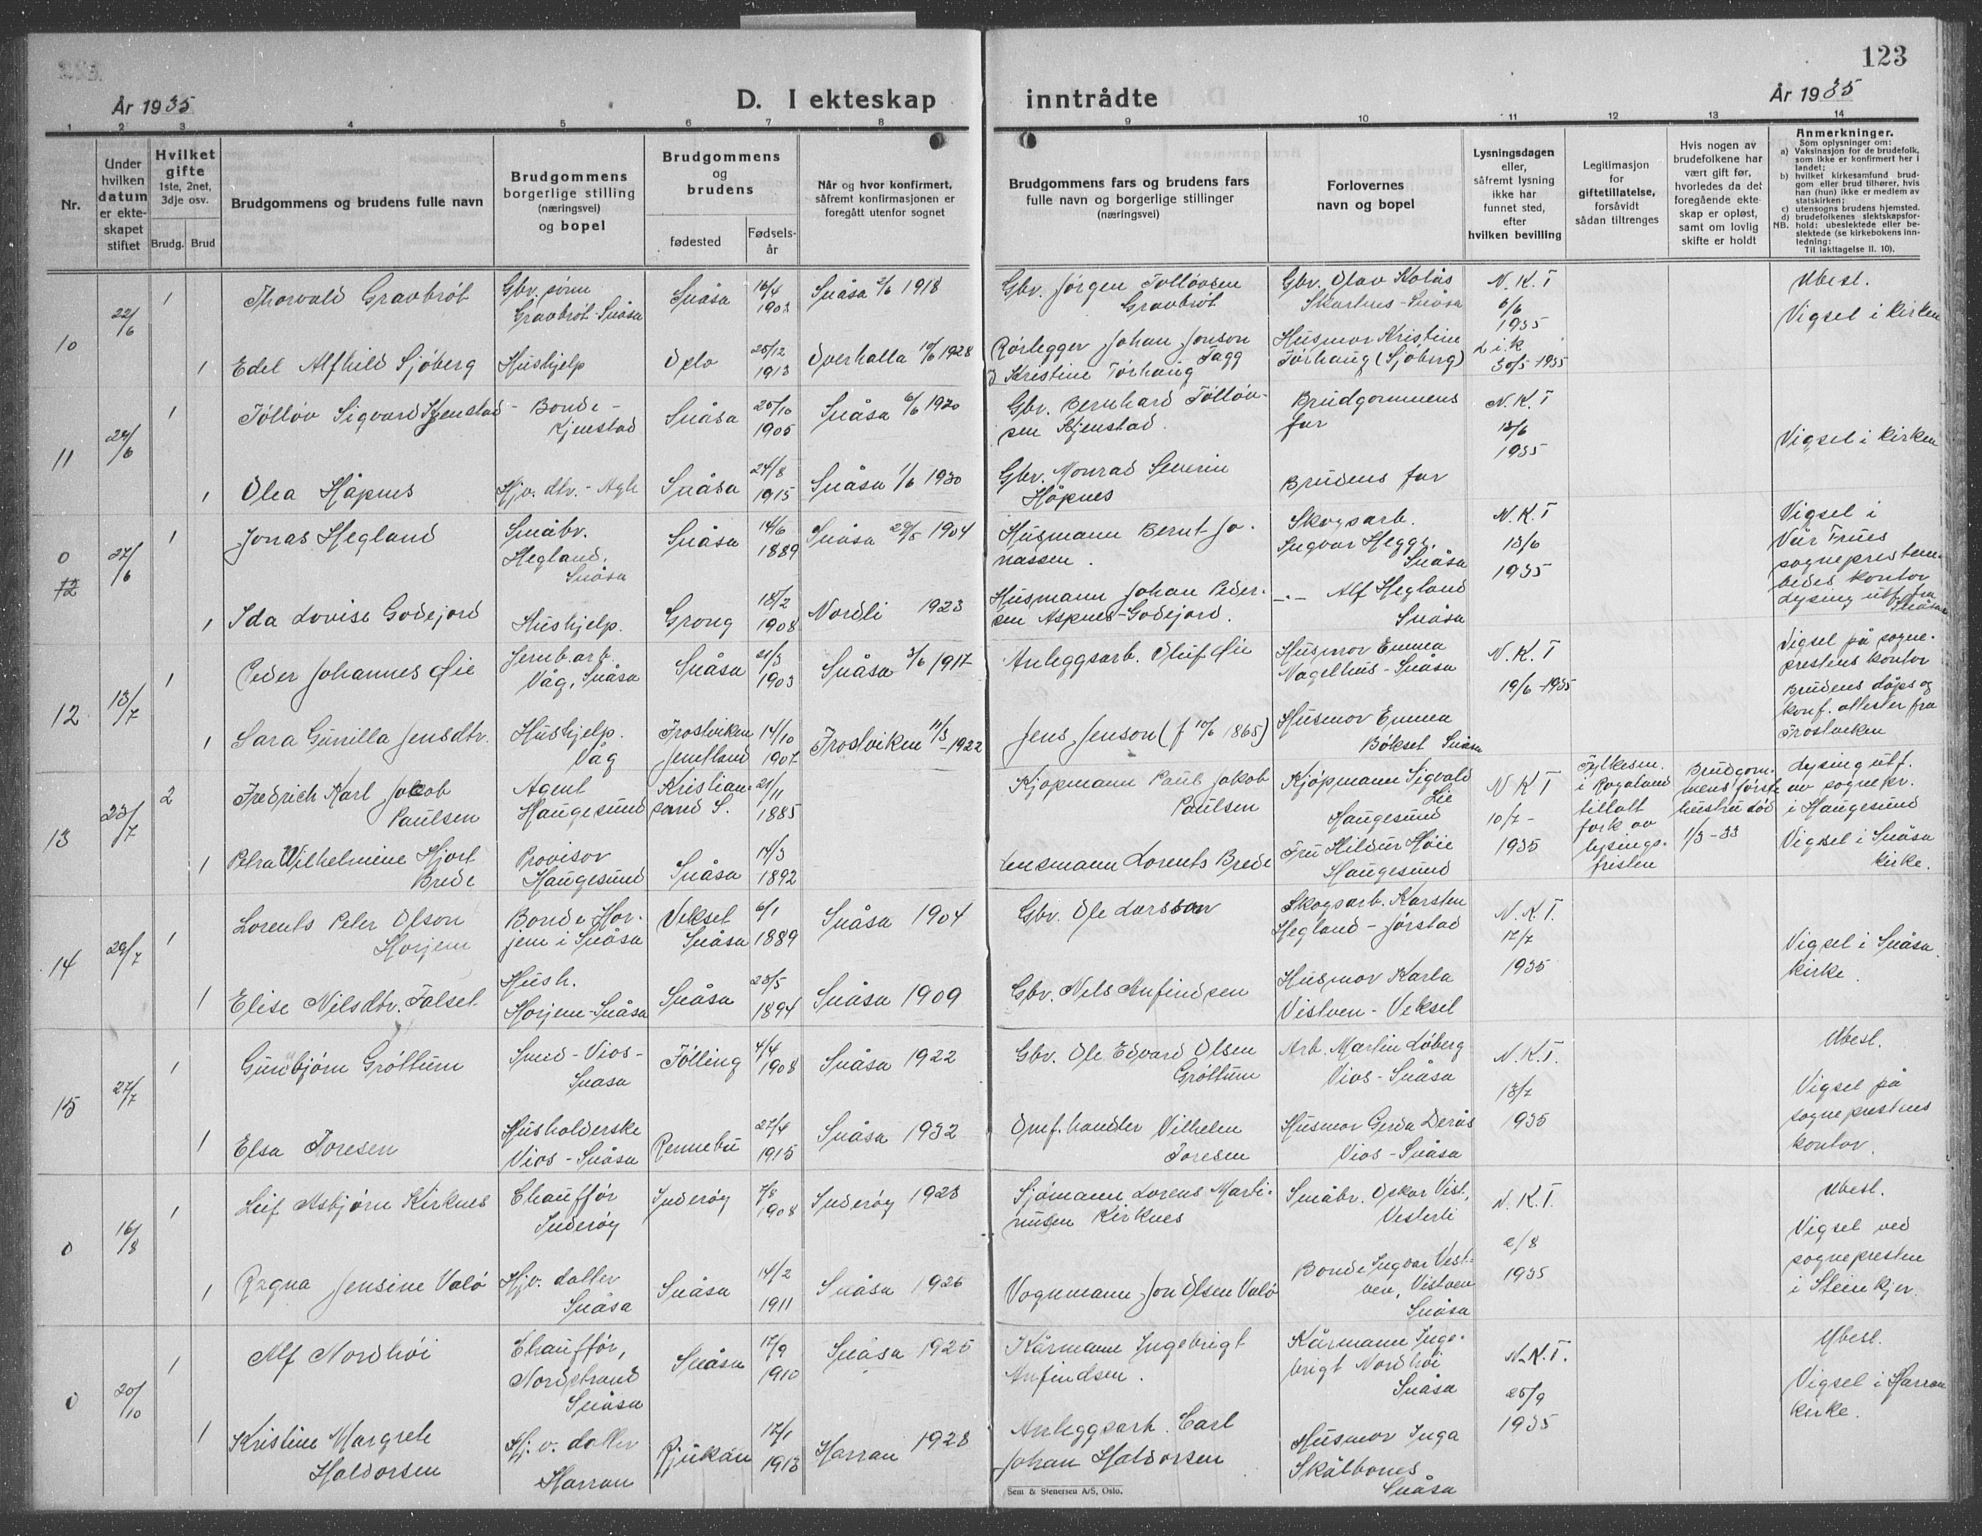 123
År 1935
D. I ekteskap
inntrådte
År 1935
1 2 3 4 5 6 7 8 9 10 11 12 13 14
Nr.
Under
hvilken
datum
er ekte-
skapet
stiftet
Hvilket
gifte
1ste, 2net,
3dje osv.
Brudg. Brud
Brudgommens og brudens fulle navn
Brudgommens
borgerlige stilling
(næringsvei)
og bopel
Brudgommens
og
brudens
fødested
Fødsels-
år
Når og hvor konfirmert,
såfremt konfirmasjonen er
foregått utenfor sognet
Brudgommens fars og brudens fars
fulle navn og borgerlige stillinger
(næringsvei)
Forlovernes
navn og bopel
Lysningsdagen
eller,
såfremt lysning
ikke har
funnet sted,
efter
hvilken bevilling
Legitimasjon
for
giftetillatelse,
forsåvidt
sådan tiltrenges
Hvis nogen av
brudefolkene har
vært gift før,
hvorledes da det
foregående ekte-
skap er opløst,
samt om lovlig
skifte er holdt
Anmerkninger.
Som oplysninger om:
a) Vaksinasjon for de brudefolk,
som ikke er konfirmert her i
landet;
b) hvilket kirkesamfund brud-
gom eller brud tilhører, hvis
han (hun) ikke er medlem av
statskirken;
c) utensogns brudens hjemsted.
d) brudefolkenes slektskapsfor-
NB. hold: ubeslektede eller be-
slektede (se kirkebokens inn-
ledning:
Til iakttagelse II. 10).
10
22/6
1
Thorvald Gravbrøt
Gbr. sønn
Gravbrøt-Snåsa
Snåsa
16/4
1903
Snåsa 2/6 1918
Gbr. Jørgen Tolløvsen
Gravbrøt
Gbr. Olav Kolås
Snåsa
N.K.T
6/6
1935
Ubesl.
Vigsel i kirken
1
Edel Alfhild Sjøberg
Hushjelp
Oslo
25/12
1913
Overhalla 10/6 1928
Rørlegger Johan Jonson
Fagg
Kristine Tørhaug
Husmor Kristine
Tørhaug (Sjöberg)
L.i.k
30/5-1935
11
24/6
1
Tölløv Sigvard Kjenstad
- Bonde -
Kjenstad
Snåsa
25/10
1905
Snåsa 6/6 1920
Gbr. Bernhard Tölløv-
sen Kjenstad.
Brudgommens
far
N.K.T
13/6
1935
Vigsel i kirken
1
Olea Håpnes
Hjv. dtr. - Agle
Snåsa
24/8
1915
Snåsa 1/6 1930
Gbr. Monrad Severin
Håpnes
Brudens far
0
12
27/6
1
Jonas Hegland
Småbr.
Hegland,
Snåsa
Snåsa
14/6
1889
Snåsa 29/5 1904
Husmann Bernt Jo-
nassen.
Skogsarb.
Ingvar Hegge,
Snåsa
N.K.T
13/6
1935
Vigsel i
Vår Frues
sogneprestem-
bedes kontor
Lysing utf. fra
Snåsa
1
Ida Lovise Godejord
Hushjelp.
Grong
18/2
1908
Nordli 1923
Husmann Johan Peder-
sen Aspnes-Godejord.
-"- Alf Hegland
Snåsa
12
13/7
1
Peder Johannes Øie
Jernb.arb.
Våg, Snåsa
Snåsa
21/3
1903
Snåsa 3/6 1917
Anleggsarb. Oluf Øie
Husmor Emma
Nagelhus-Snåsa
N.K.T
19/6-1935
Vigsel på sogne-
prestens kontor
Brudens dåps og
konf. attester fra
Frostviken
1
Sara Gunilla Jensdtr.
Hushjelp.
Våg
Frostviken
Jemtland
14/10
1907
Frostviken 11/3 -1922
Jens Jenson (f 10/6 1865)
Husmor Emma
Bökset Snåsa
13
23/7
2
Fredrich Karl Jacob
Paulsen
Agent
Haugesund
Kristian-
sand S.
21/11
1885
Kjøpmann Paul Jakob
Paulsen
Kjöpmann Sigvald
Lie
Haugesund
N K T
10/7-
1935
Fylkesm.
i Rogaland
tillatt
fork. av
lysings-
fristen
Brudgom-
mens første
hustru död
1/3-33
Lysing utf.
av sognepr.
i Haugesund
Vigsel i Snåsa
kirke.
1
Petra Wilhelmine Hjort
Brede
Provisor
Haugesund
Snåsa
14/3
1892
Lensmann Lorents Brede
Fru Hildur Høie
Haugesund
14
29/7
1
Lorents Peter Olson
Horjem
Bonde Hor-
jem i Snåsa
Vekset
Snåsa
6/1
1889
Snåsa 1904
Gbr. Ole Larsson
Skogsarb. Karsten
Hegland-Jørstad
N.K.T.
12/7
1935
Vigsel i Snåsa
kirke.
1
Elise Nilsdtr. Folset
Hush.
Horjem-Snåsa
Snåsa
23/5
1894
Snåsa 1909
Gbr. Nils Anfindsen
Husmor Karla
Vistven - Veksel
15
27/7
1
Gunbjørn Gröttum
Smed-Vios-
Snåsa
Tölling
4/4
1908
Snåsa 1922
Gbr. Ole Edvard Olsen
Gröttum
Arb. Martin Løberg
Vios-Snåsa
N.K.T.
13/7
1935
Ubesl.
Vigsel på
sogneprestens
kontor.
1
Elsa Toresen
Husholderske
Vios-Snåsa
Rennebu
27/4
1915
Snåsa 1932
Omf.handler Vilhelm
Toresen
Husmor Gerda Derås
Vios-Snåsa
0
16/8
1
Leif Asbjørn Kirknes
Chauffør
Inderøy
Inderøy
7/8
1908
Inderøy 1923
Sjømann Lorens Marti-
nusen Kirknes
Småbr. Oskar Vist,
Vesterli
N.K.T.
2/8
1935
Ubesl.
Vigsel ved
sognepresten
i Steinkjer.
1
Ragna Jensine Valø
Hjv. datter
Snåsa
Snåsa
14/2
1911
Snåsa 1926
Vognmann Jon Olsen Valø
Bonde Ingvar Vest-
ven, Vistven
Snåsa
0
20/10
1
Alf Nordhöi
Chauffør,
Nordstrand
Snåsa
Snåsa
17/9
1910
Snåsa 1925
Kårmann Ingebrigt
Anfindsen.
Kårmann Inge-
brigt Nordhöi
Snåsa
N.K.T.
25/9
1935
Ubesl.
Vigsel i Harran
kirke.
1
Kristine Margrete
Haldorsen
Hj.v. datter
Harran
Rjukan
17/1
1913
Harran 1928
Anleggsarb. Carl
Johan Haldorsen
Husmor Inga
Skålbones
Snåsa
Sem & Stenersen A/S, Oslo.